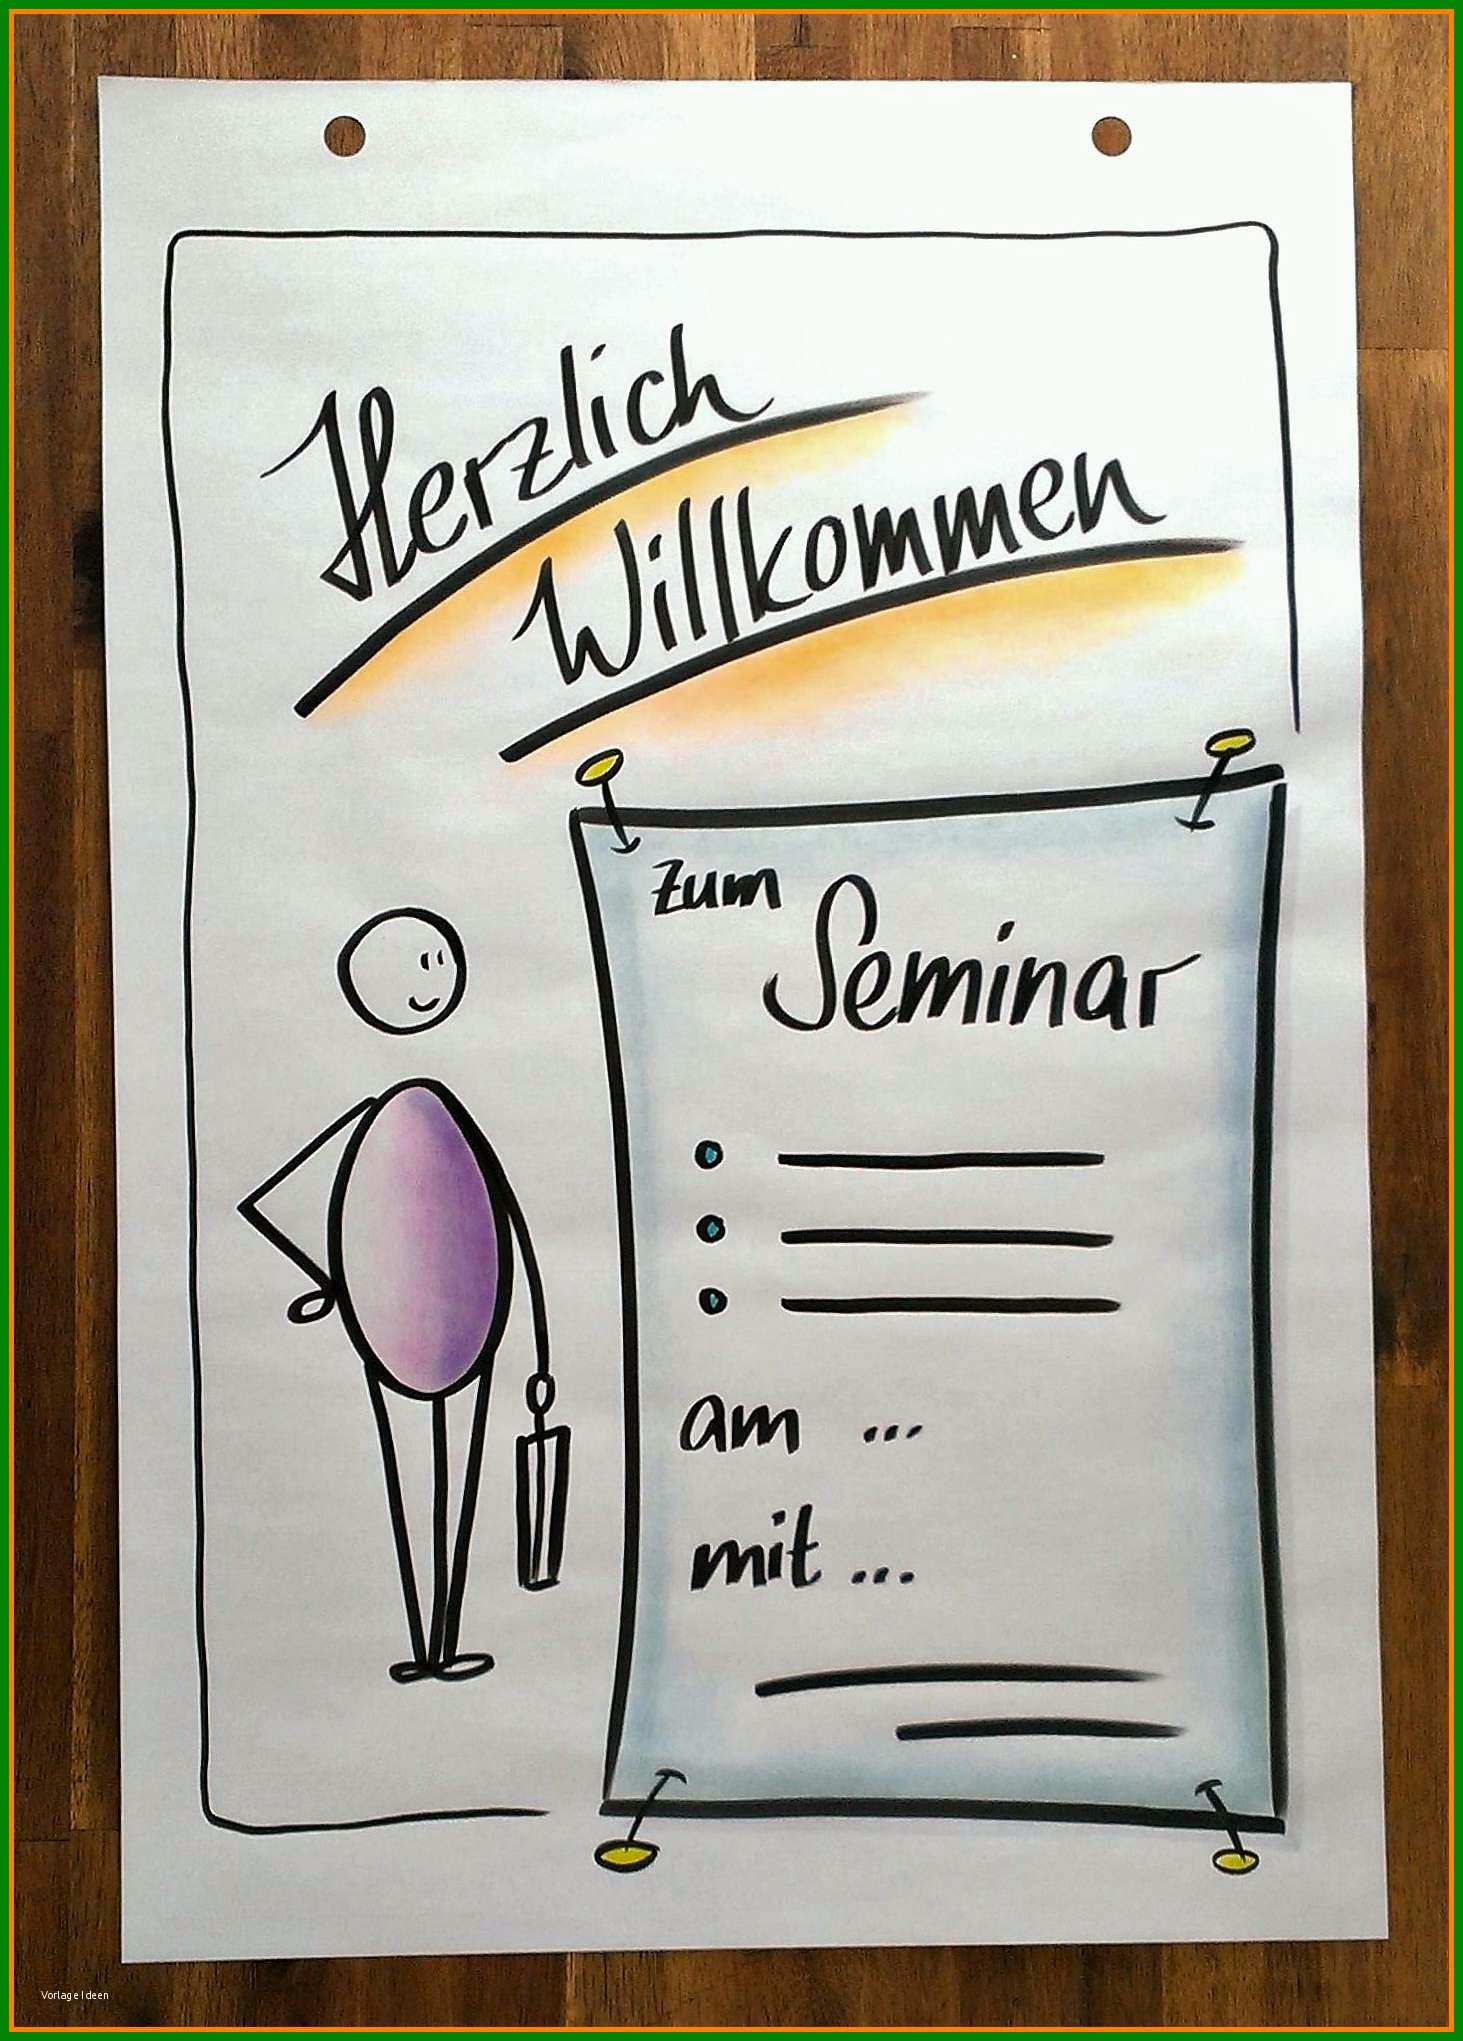 Herzlich
Willkommen
zum
Seminar
am ...
mit ...
Vorlage Ideen